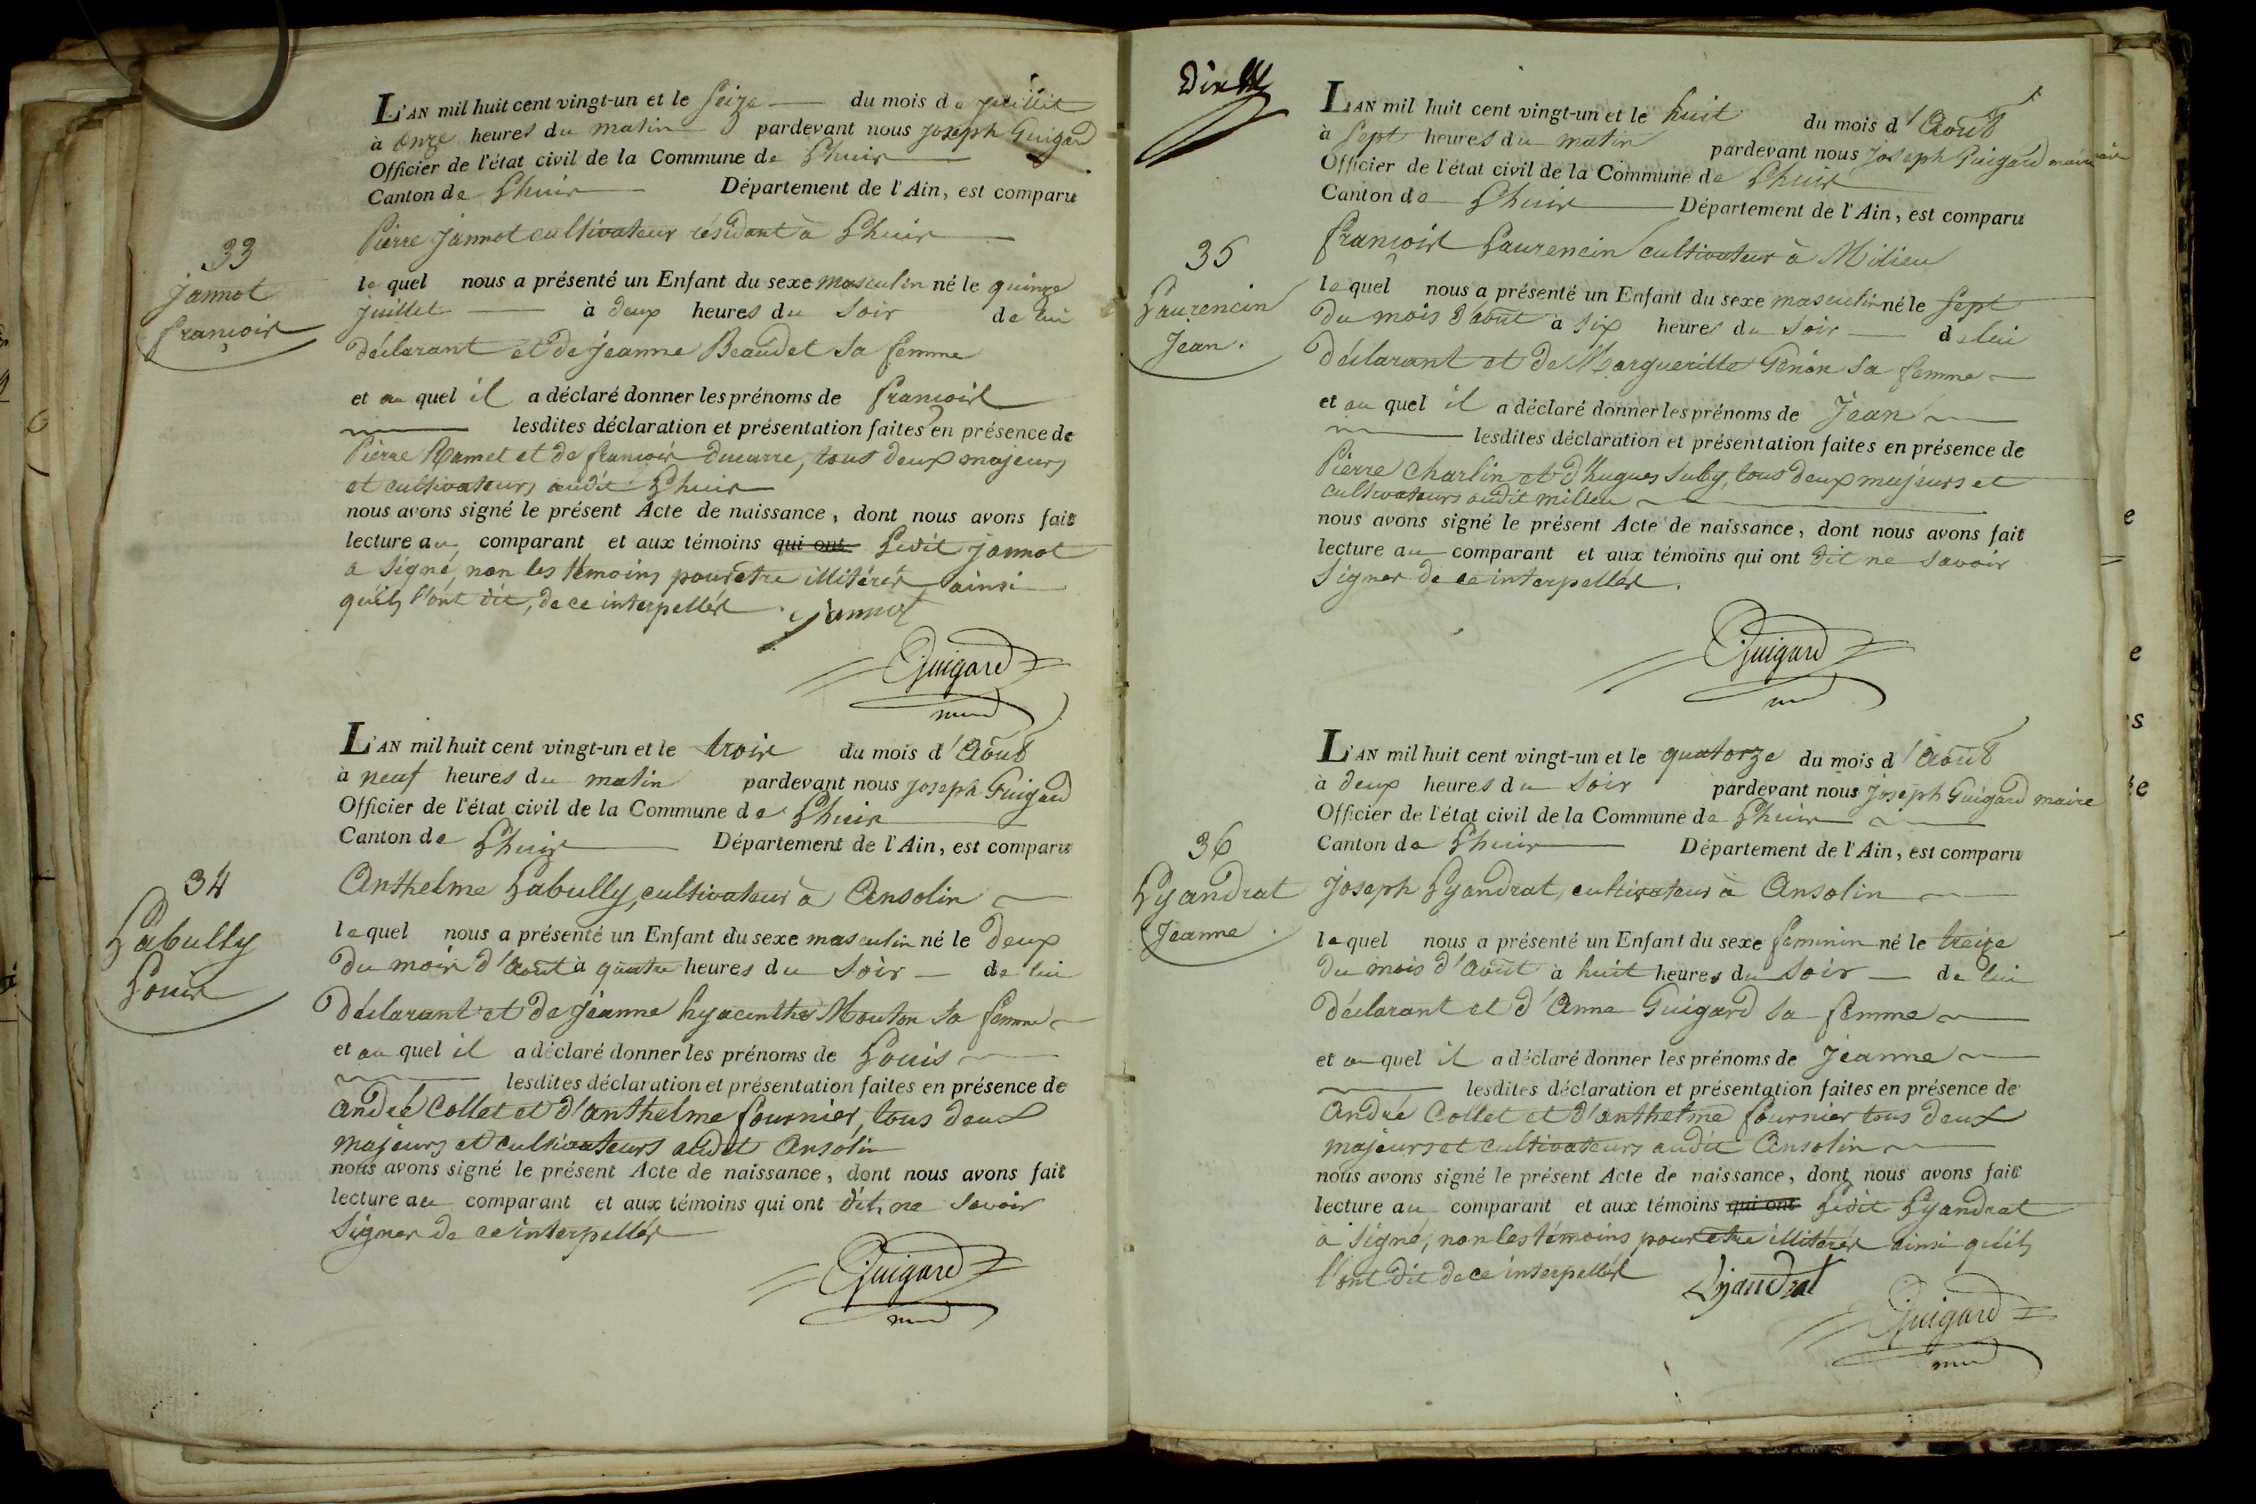 L'AN mil huit cent vingt-un et le Seize du mois de juillet
à onze heures du matin pardevant nous joseph Guigard
Officier de l'état civil de la Commune de Lhuis
Canton de Lhuis Département de l'Ain, est comparu
Pierre Jannot cultivateur résidant à Lhuis
33
Jannot
françois
le quel nous a présenté un Enfant du sexe masculin né le quinze
juillet à deux heures du Soir de lui
déclarant et de jeanne Beaudet sa femme
et au quel il a déclaré donner les prénoms de françois
lesdites déclaration et présentation faites en présence de
Pierre Ramel et de françois ducarre, tous deux majeurs
et cultivateurs audit Lhuis
nous avons signé le présent Acte de naissance, dont nous avons fait
lecture au comparant et aux témoins qui ont Ledit jannot
a Signé, non les témoins pour etre illitérés ainsi
qu'ils l'ont dit, de ce interpellés. Jannot
Guigard
L'AN mil huit cent vingt-un et le trois du mois d'Aout
à neuf heures du matin pardevant nous joseph Guigard
Officier de l'état civil de la Commune de Lhuis
Canton de Lhuis Département de l'Ain, est comparu
34
Labully
Louis
Anthelme Labully, cultivateur à Ansolin
le quel nous a présenté un Enfant du sexe masculin né le deux
du mois d'Aout à quatre heures du Soir de lui
déclarant et de jeanne hyacinthe Mouton sa femme
et au quel il a déclaré donner les prénoms de Louis
lesdites déclaration et présentation faites en présence de
André Collet et d'anthelme fournier, tous deux
majeurs et cultivateurs audit Ansolin
nous avons signé le présent Acte de naissance, dont nous avons fait
lecture au comparant et aux témoins qui ont dit, ne Savoir
Signer de ce interpellés
Guigard
L'AN mil huit cent vingt-un et le huit du mois d'Aout
à Sept heures du matin pardevant nous joseph Guigard maire
Officier de l'état civil de la Commune de Lhuis
Canton de Lhuis Département de l'Ain, est comparu
35
Laurencin
Jean.
françois Laurencin cultivateur à Milieu
le quel nous a présenté un Enfant du sexe masculin né le Sept
du mois d'aout à Six heures du Soir de lui
déclarant et de Margueritte Genön sa femme
et au quel il a déclaré donner les prénoms de Jean
lesdites déclaration et présentation faites en présence de
Pierre Charlin et d'hugues Suby, tous deux majeurs et
cultivateurs audit milieu
nous avons signé le présent Acte de naissance, dont nous avons fait
lecture au comparant et aux témoins qui ont dit ne savoir
Signer de ce interpellés.
Guigard
L'AN mil huit cent vingt-un et le quatorze du mois d'Aout
à deux heures du Soir pardevant nous joseph Guigard maire
Officier de l'état civil de la Commune de Lhuis
Canton de Lhuis Département de l'Ain, est comparu
36
Lyandrat
Jeanne.
Joseph Lyandrat, cultivateur à Ansolin
le quel nous a présenté un Enfant du sexe feminin né le treize
du mois d'Aout à huit heures du Soir de lui
déclarant et d'Anne Guigard sa femme
et au quel il a déclaré donner les prénoms de Jeanne
lesdites déclaration et présentation faites en présence de
André Collet et d'anthelme fournier tous deux
majeurs et cultivateurs audit Ansolin
nous avons signé le présent Acte de naissance, dont nous avons fait
lecture au comparant et aux témoins qui ont Ledit Lyandrat
à Signé, non les témoins pour etre illitérés ainsi qu'ils
l'ont dit de ce interpellés Lyandrat
Guigard